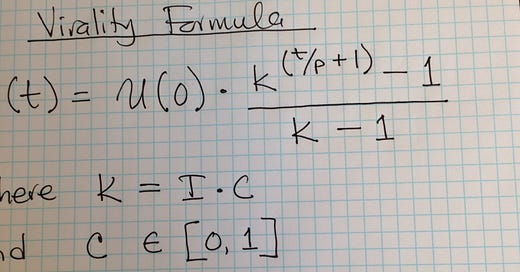 Virality Formula
(t) = u(0) · k^(t/p + 1) - 1 / k - 1
here K = I · C
nd C ∈ [0, 1]